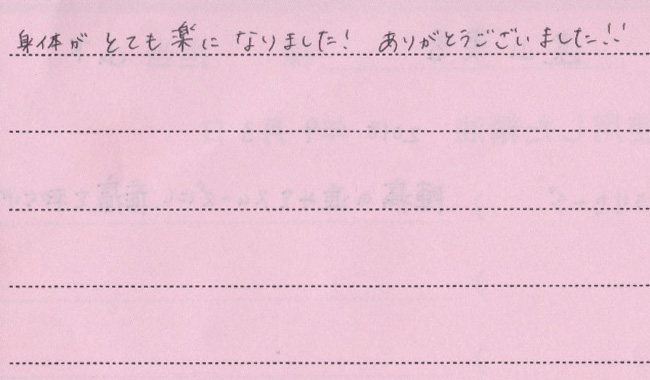 身体が とても楽に なりました! ありがとうございました!!